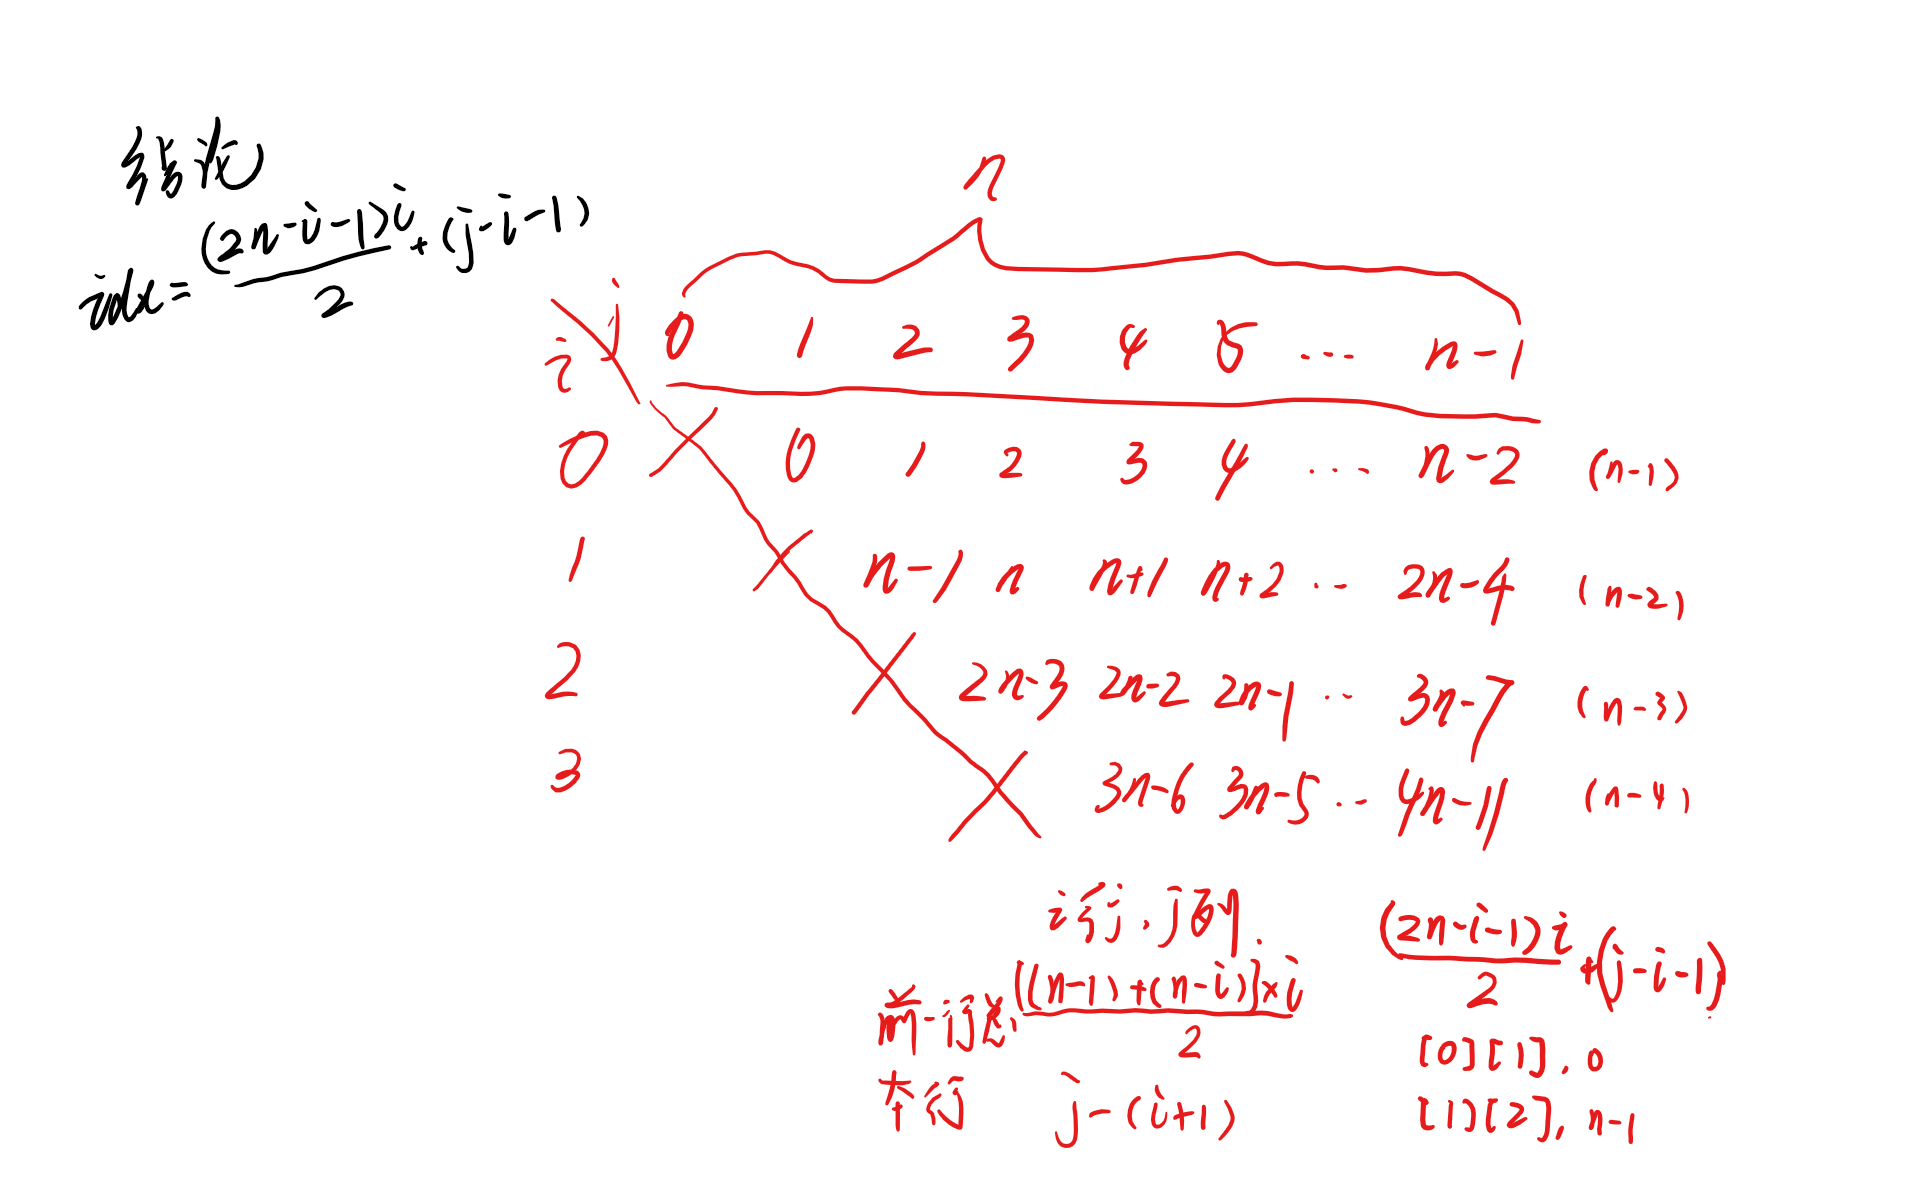 结论
idx = (2n-i-1)i/2 + (j-i-1)
n
i j 0 1 2 3 4 5 ... n-1
0 0 1 2 3 4 ... n-2 (n-1)
1 n-1 n n+1 n+2 ... 2n-4 (n-2)
2 2n-3 2n-2 2n-1 ... 3n-7 (n-3)
3 3n-6 3n-5 ... 4n-11 (n-4)
i行, j列.
前一行总: [(n-1)+(n-i)]×i/2
本行 j-(i+1)
(2n-i-1)i/2 + (j-i-1)
[0][1], 0
[1][2], n-1